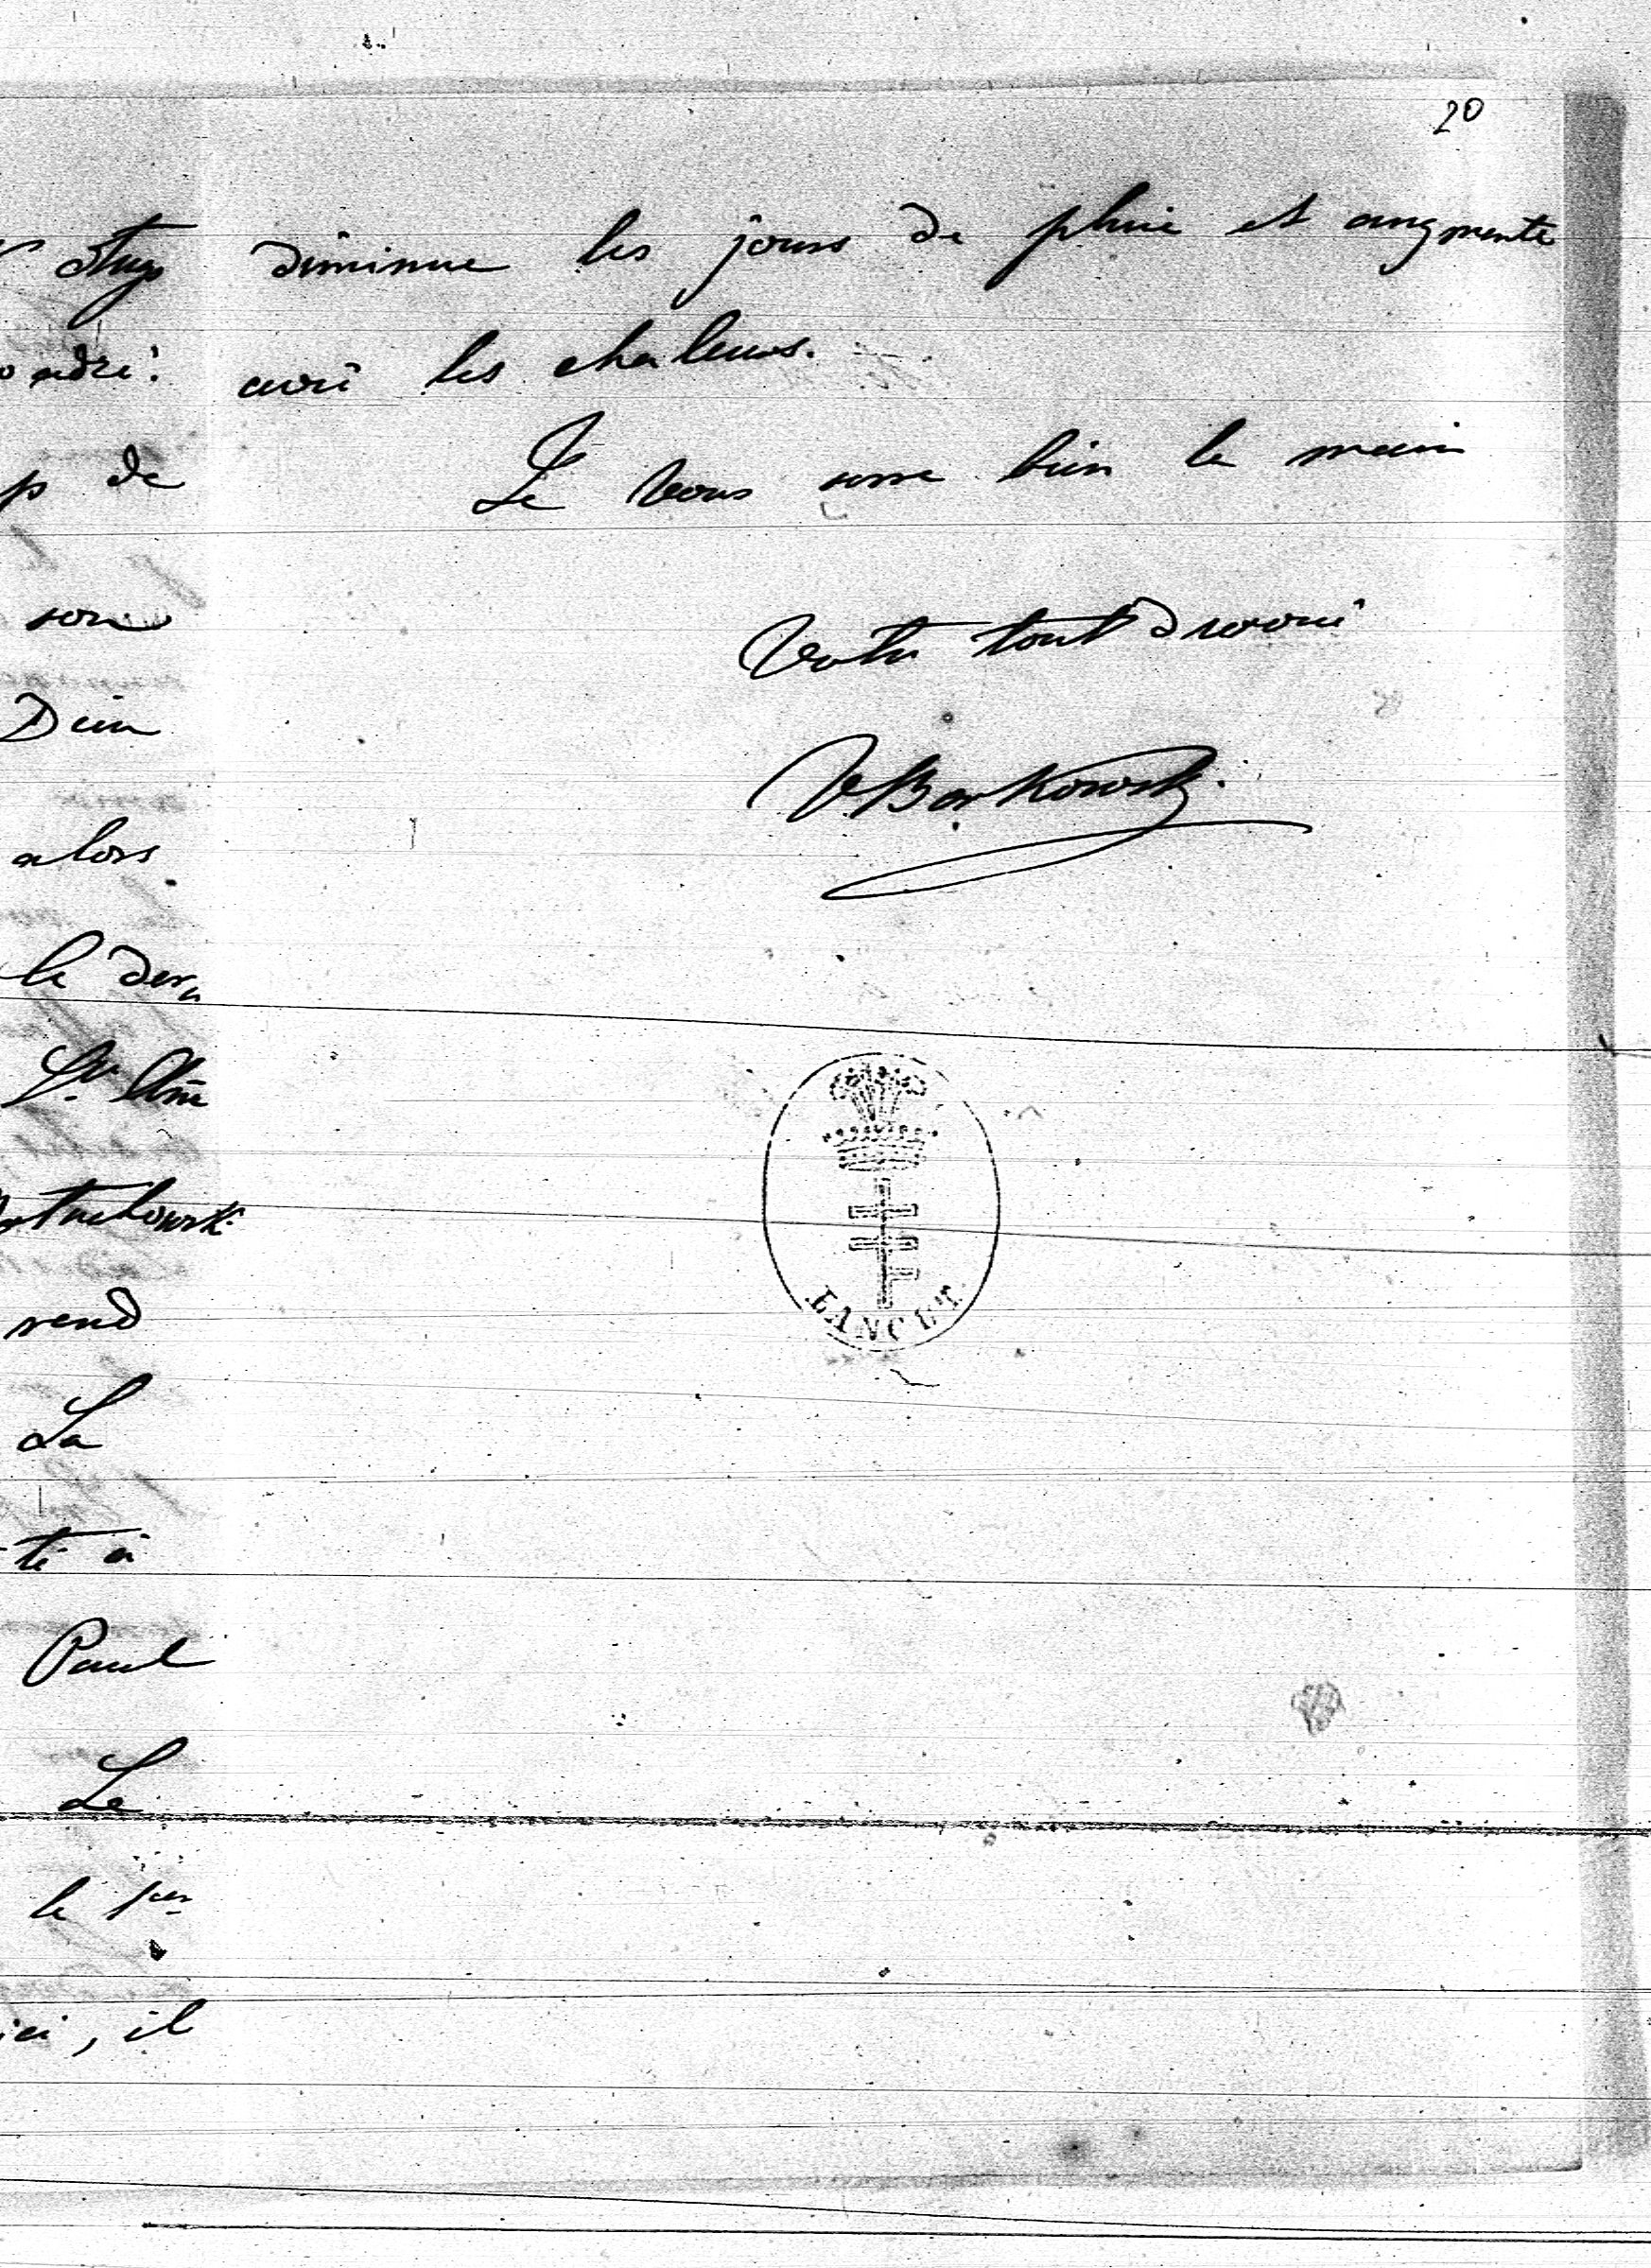 20
diminue les jours de pluie et augmente
avec les chaleurs.
Je vous serre bien la main
Votre tout dévoué
VBorkowski.
ŁAŃCUT
de
son
Dieu
alors
le dern
rend
La
té à
Paul
Le
le 1er
ici, il